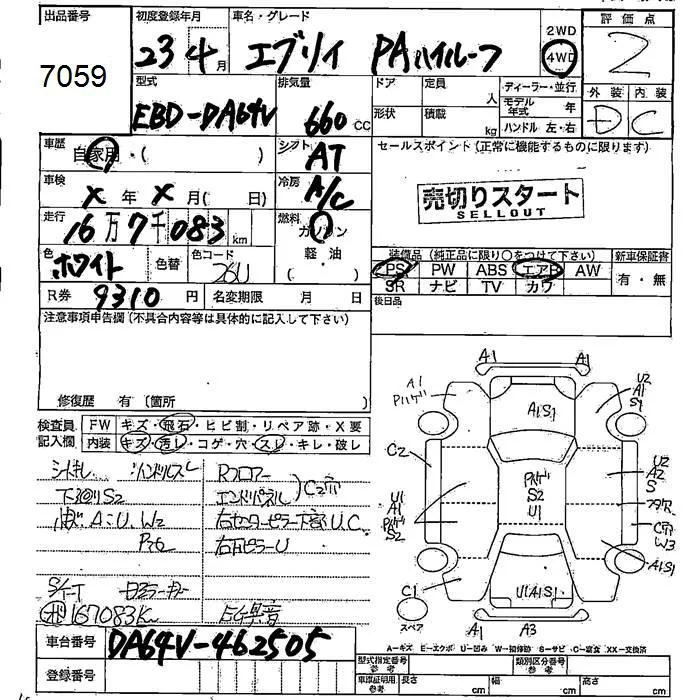 出品番号
7059
初度登録年月
23 4月
車名・グレード
エブリイ PAハイルーフ
2WD
4WD
評価点
2
型式
EBD-DA64V
排気量
660 CC
ドア
定員
人
形状
積載
kg
ディーラー・並行
モデル年式 年
ハンドル 左・右
外装
内装
D
C
車歴
自家用・( )
シフト
AT
車検
X 年 X 月( 日)
冷房
A/C
走行
16万7千083 km
燃料
ガソリン
軽・油
( )
色
ホワイト
色替
色コード
26U
R券
9310 円
名変期限 月 日
セールスポイント(正常に機能するものに限ります)
売切りスタート
SELLOUT
装備品(純正品に限り○をつけて下さい)
新車保証書
PS PW ABS エアB AW
SR ナビ TV カワ
有・無
後日品
注意事項申告欄(不具合内容等は具体的に記入して下さい)
修復歴 有〔箇所 〕
検査員記入欄
FW
キズ・飛石・ヒビ割・リペア跡・X要
内装
キズ・汚レ・コゲ・穴・スレ・キレ・破レ
シートキレ ハンドルスレ
下回りS2
Rフロアー
エンドパネル
C2穴
右センターピラー下部U.C.
右Fピラーu
167083K
EG異音
A1
A1
A1
U2
A1
S1
A1S1
C2
U1
A1
S2
S2
U1
U2
A2
S
C穴
W3
A1S1
C1
U1A1S1
A1
A3
スペア
A−キズ E−エクボ U−凹み W−補修跡 S−サビ C−腐食 XX−交換済
車台番号
DA64V-462505
登録番号
型式指定番号
参考
類別区分番号
参考
車庫証明用
参考
長さ cm
幅 cm
高さ cm